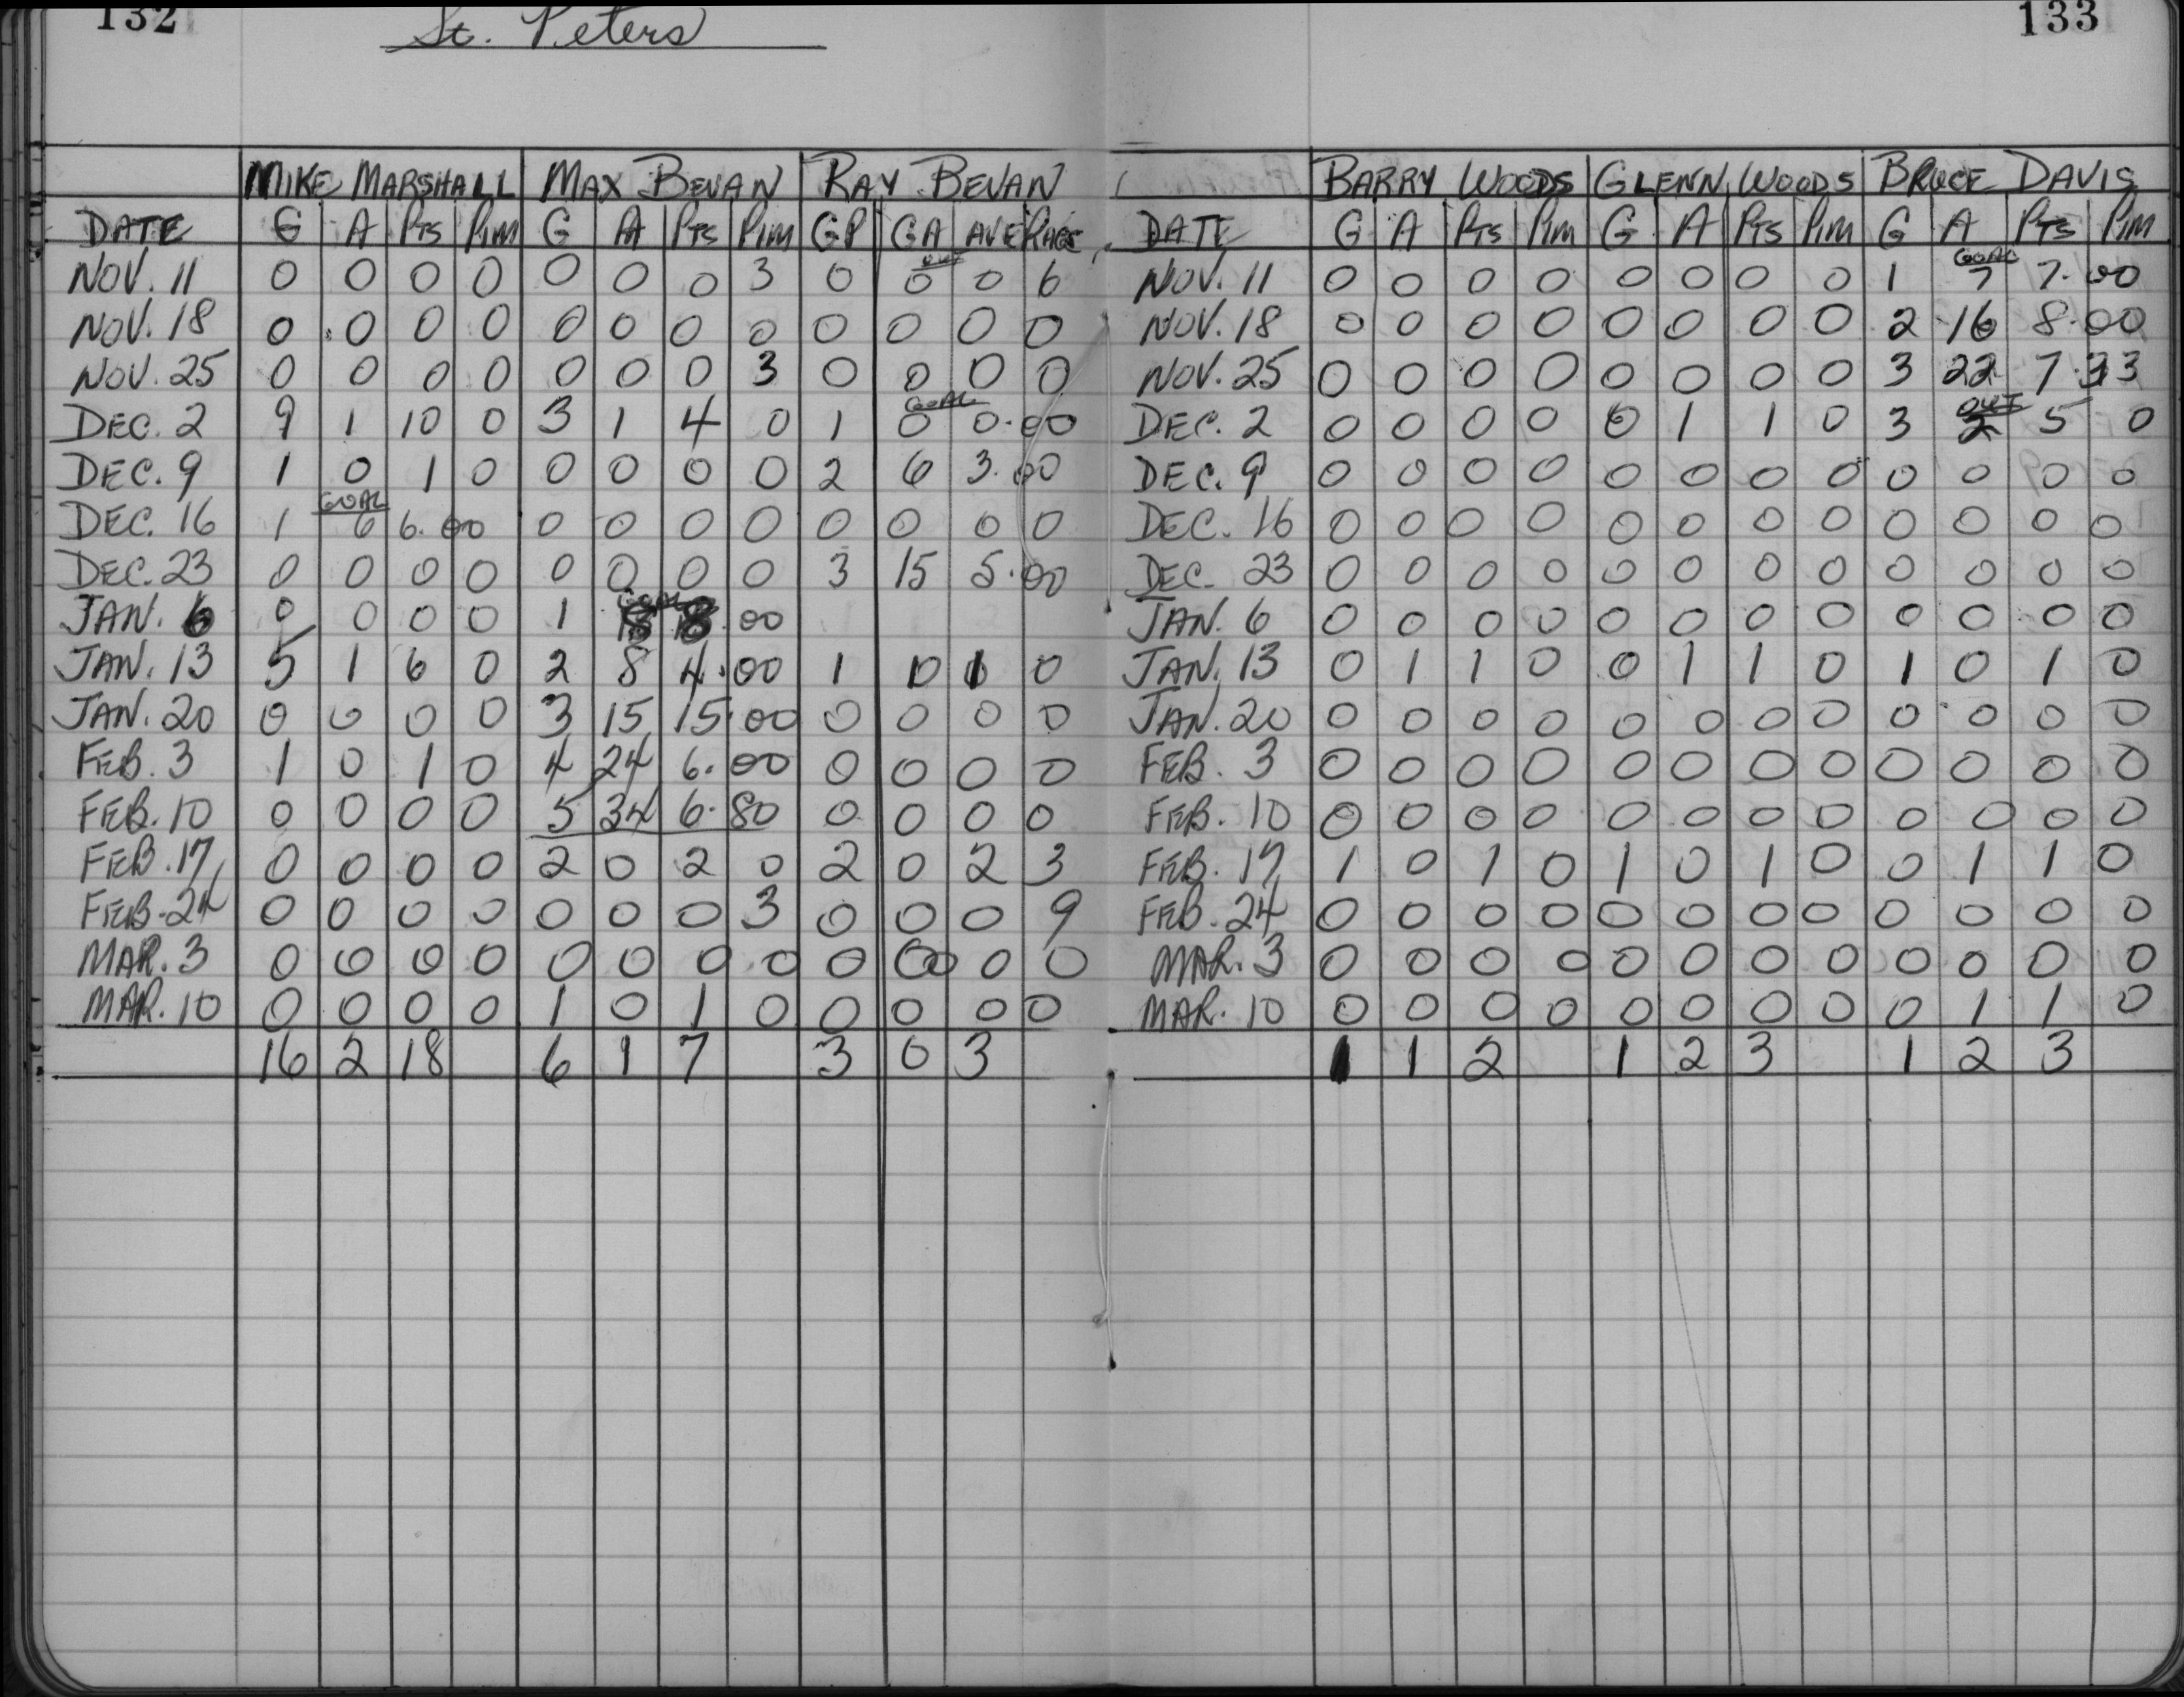 132
St. Peters
MIKE MARSHALL MAX BEVAN RAY BEVAN
DATE G A PTS PIM G A PTS PIM GP GA AVERAGE
OUT
NOV. 11 0 0 0 0 0 0 0 3 0 0 0 6
NOV. 18 0 0 0 0 0 0 0 0 0 0 0 0
NOV. 25 0 0 0 0 0 0 0 3 0 0 0 0
GOAL
DEC. 2 9 1 10 0 3 1 4 0 1 0 0.00
DEC. 9 1 0 1 0 0 0 0 0 2 6 3.00
GOAL
DEC. 16 1 6 6.00 0 0 0 0 0 0 0 0
DEC. 23 0 0 0 0 0 0 0 0 3 15 5.00
GOAL
JAN. 6 0 0 0 0 1 8 8.00
JAN. 13 5 1 6 0 2 8 4.00 1 0 1 0
JAN. 20 0 0 0 0 3 15 15.00 0 0 0 0
FEB. 3 1 0 1 0 4 24 6.00 0 0 0 0
FEB. 10 0 0 0 0 5 34 6.80 0 0 0 0
FEB. 17 0 0 0 0 2 0 2 0 2 0 2 3
FEB. 24 0 0 0 0 0 0 0 3 0 0 0 9
MAR. 3 0 0 0 0 0 0 0 0 0 0 0 0
MAR. 10 0 0 0 0 1 0 1 0 0 0 0 0
16 2 18 6 1 7 3 0 3
133
BARRY WOODS GLENN WOODS BRUCE DAVIS
DATE G A PTS PIM G A PTS PIM G A PTS PIM
GOAL
NOV. 11 0 0 0 0 0 0 0 0 1 7 7.00
NOV. 18 0 0 0 0 0 0 0 0 2 16 8.00
NOV. 25 0 0 0 0 0 0 0 0 3 22 7.33
OUT
DEC. 2 0 0 0 0 0 1 1 0 3 2 5 0
DEC. 9 0 0 0 0 0 0 0 0 0 0 0 0
DEC. 16 0 0 0 0 0 0 0 0 0 0 0 0
DEC. 23 0 0 0 0 0 0 0 0 0 0 0 0
JAN. 6 0 0 0 0 0 0 0 0 0 0 0 0
JAN. 13 0 1 1 0 0 1 1 0 1 0 1 0
JAN. 20 0 0 0 0 0 0 0 0 0 0 0 0
FEB. 3 0 0 0 0 0 0 0 0 0 0 0 0
FEB. 10 0 0 0 0 0 0 0 0 0 0 0 0
FEB. 17 1 0 1 0 1 0 1 0 0 1 1 0
FEB. 24 0 0 0 0 0 0 0 0 0 0 0 0
MAR. 3 0 0 0 0 0 0 0 0 0 0 0 0
MAR. 10 0 0 0 0 0 0 0 0 0 1 1 0
1 1 2 1 2 3 1 2 3